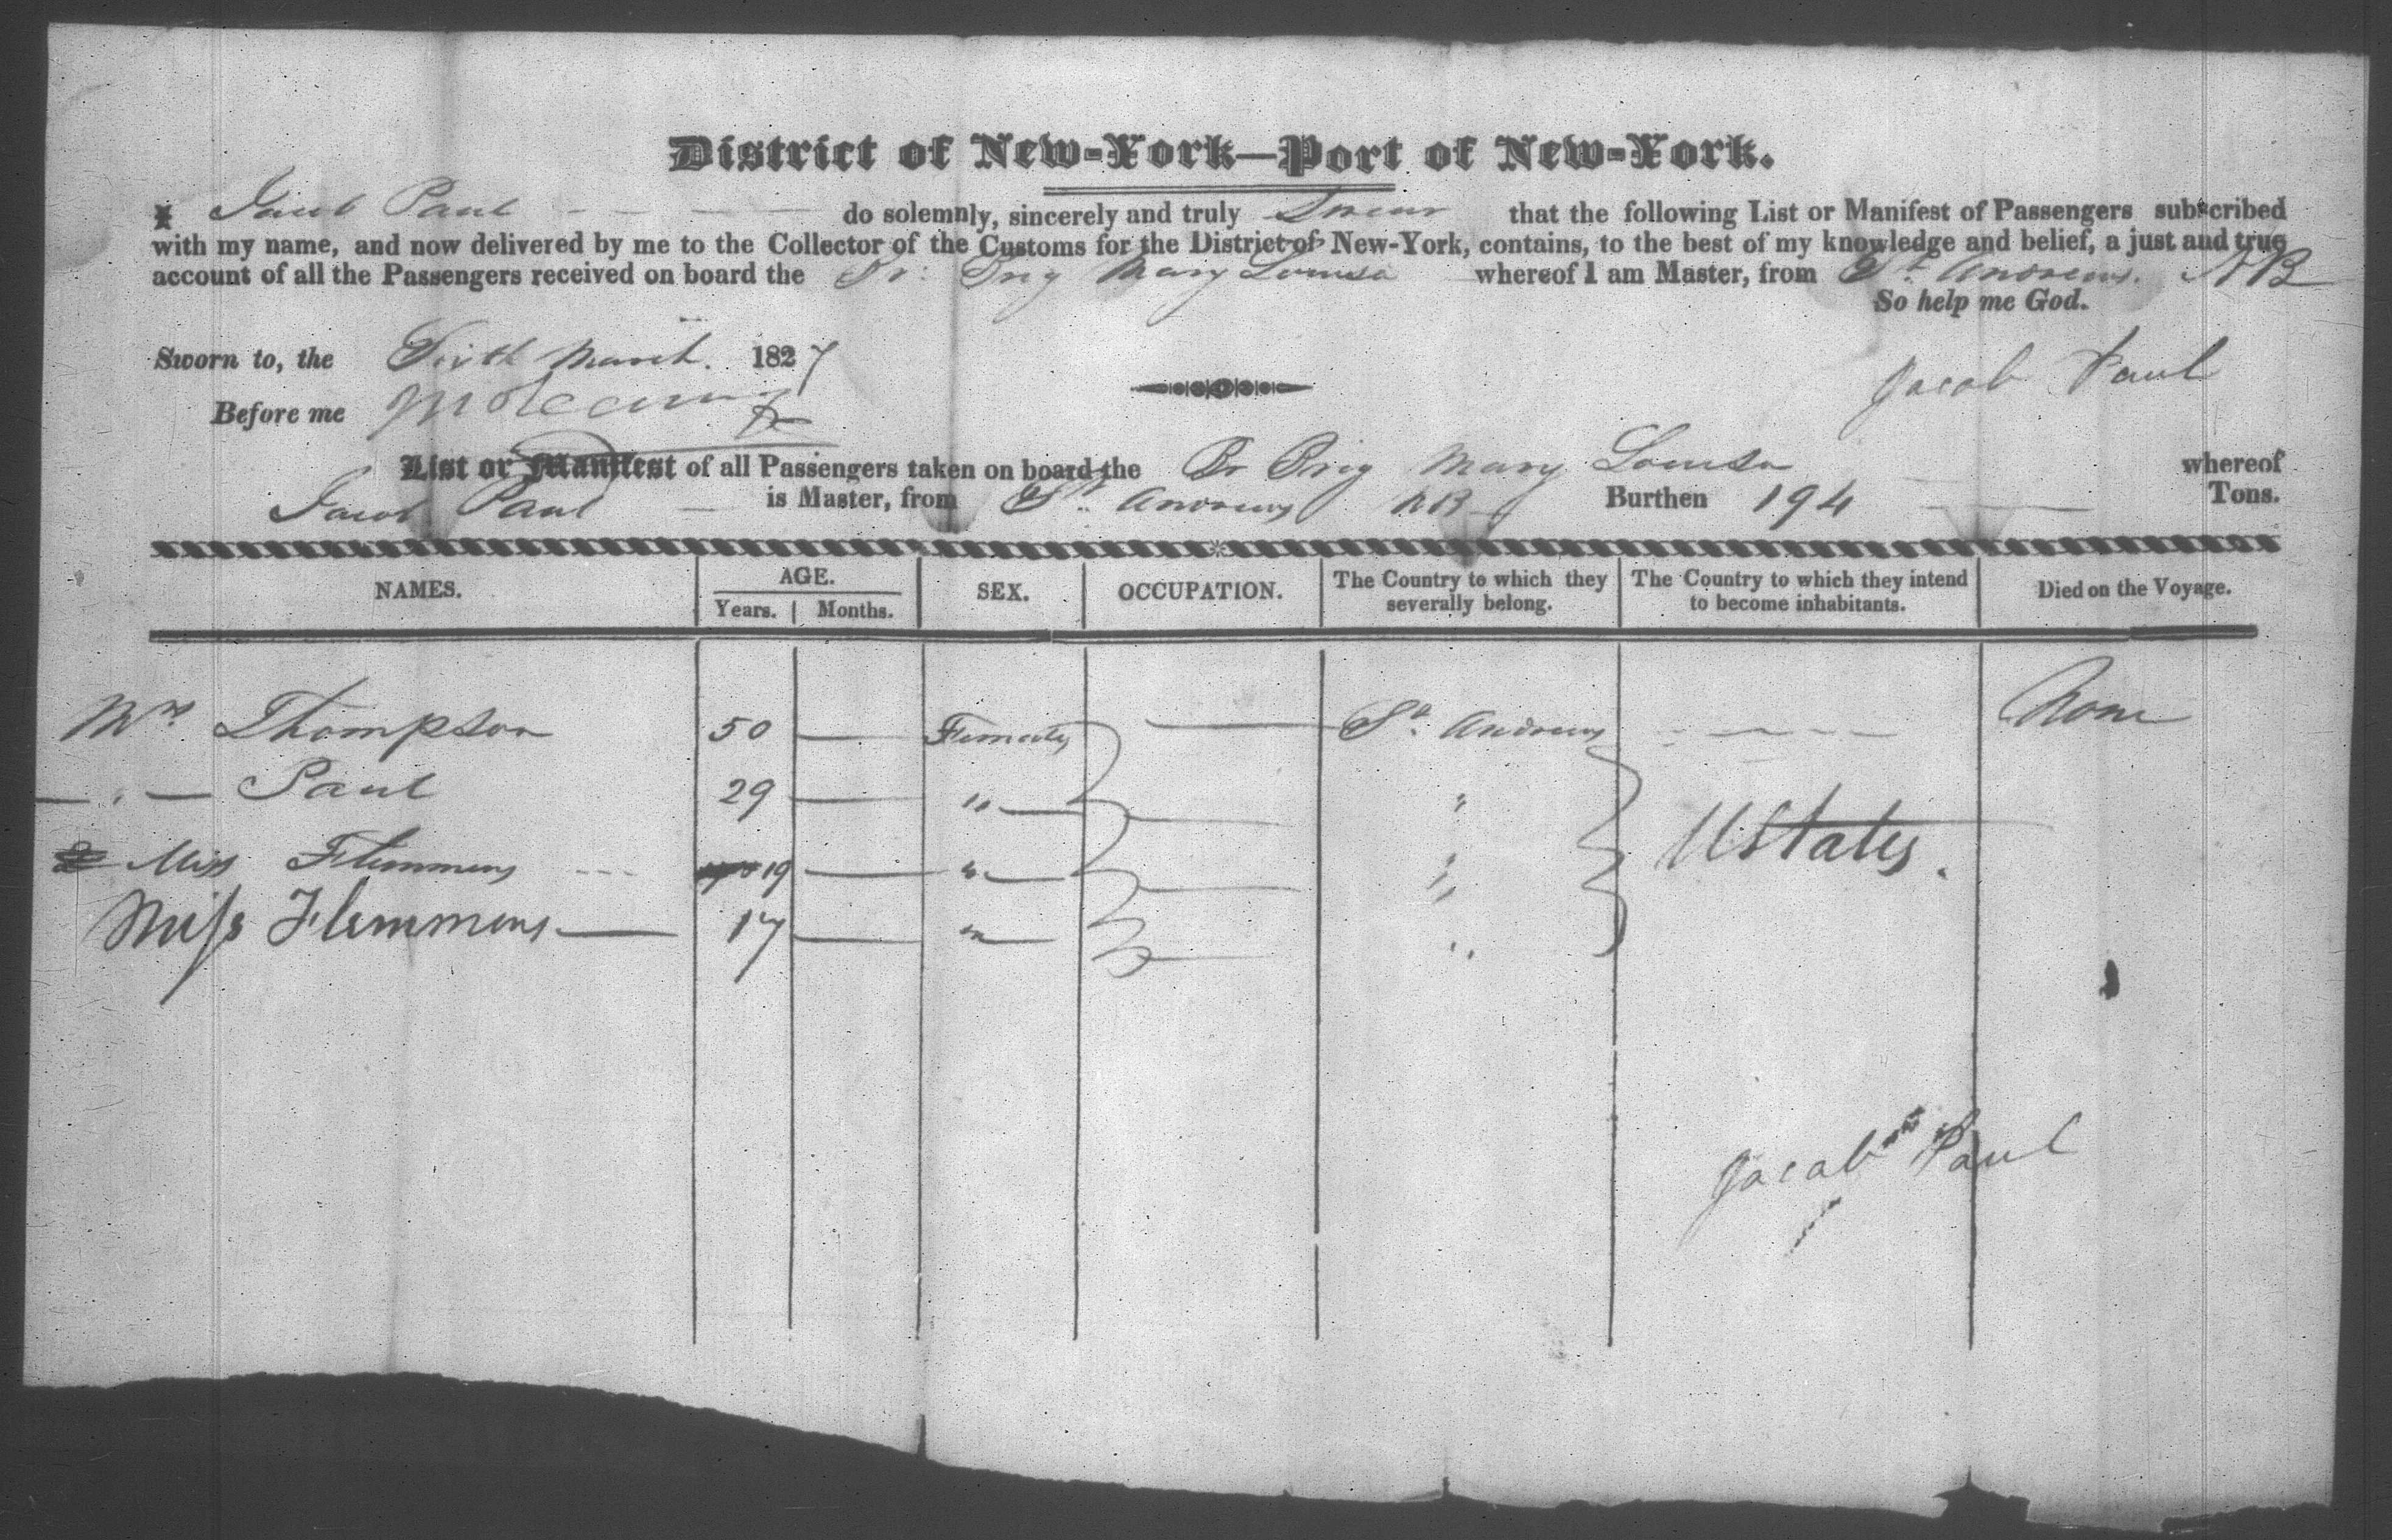 District of New-York—Port of New-York.
I Jacob Paul do solemnly, sincerely and truly Swear that the following List or Manifest of Passengers subscribed
with my name, and now delivered by me to the Collector of the Customs for the District of New-York, contains, to the best of my knowledge and belief, a just and true
account of all the Passengers received on board the Br: Brig Mary Louisa whereof I am Master, from St. Andrews. NB
So help me God.
Sworn to, the Sixth March. 1827
Jacob Paul
Before me
List or Manifest of all Passengers taken on board the Br Brig Mary Louisa whereof
Jacob Paul is Master, from St. Andrews NB Burthen 194 Tons.
NAMES. AGE. Years. Months. SEX. OCCUPATION. The Country to which they severally belong. The Country to which they intend to become inhabitants. Died on the Voyage.
Mrs Thompson 50 — Females — St. Andrews None
— " — Paul 29 — " — "
Miss Flemmens 19 — " — " UStates.
Miss Flemmens — 17 — " — "
Jacob Paul